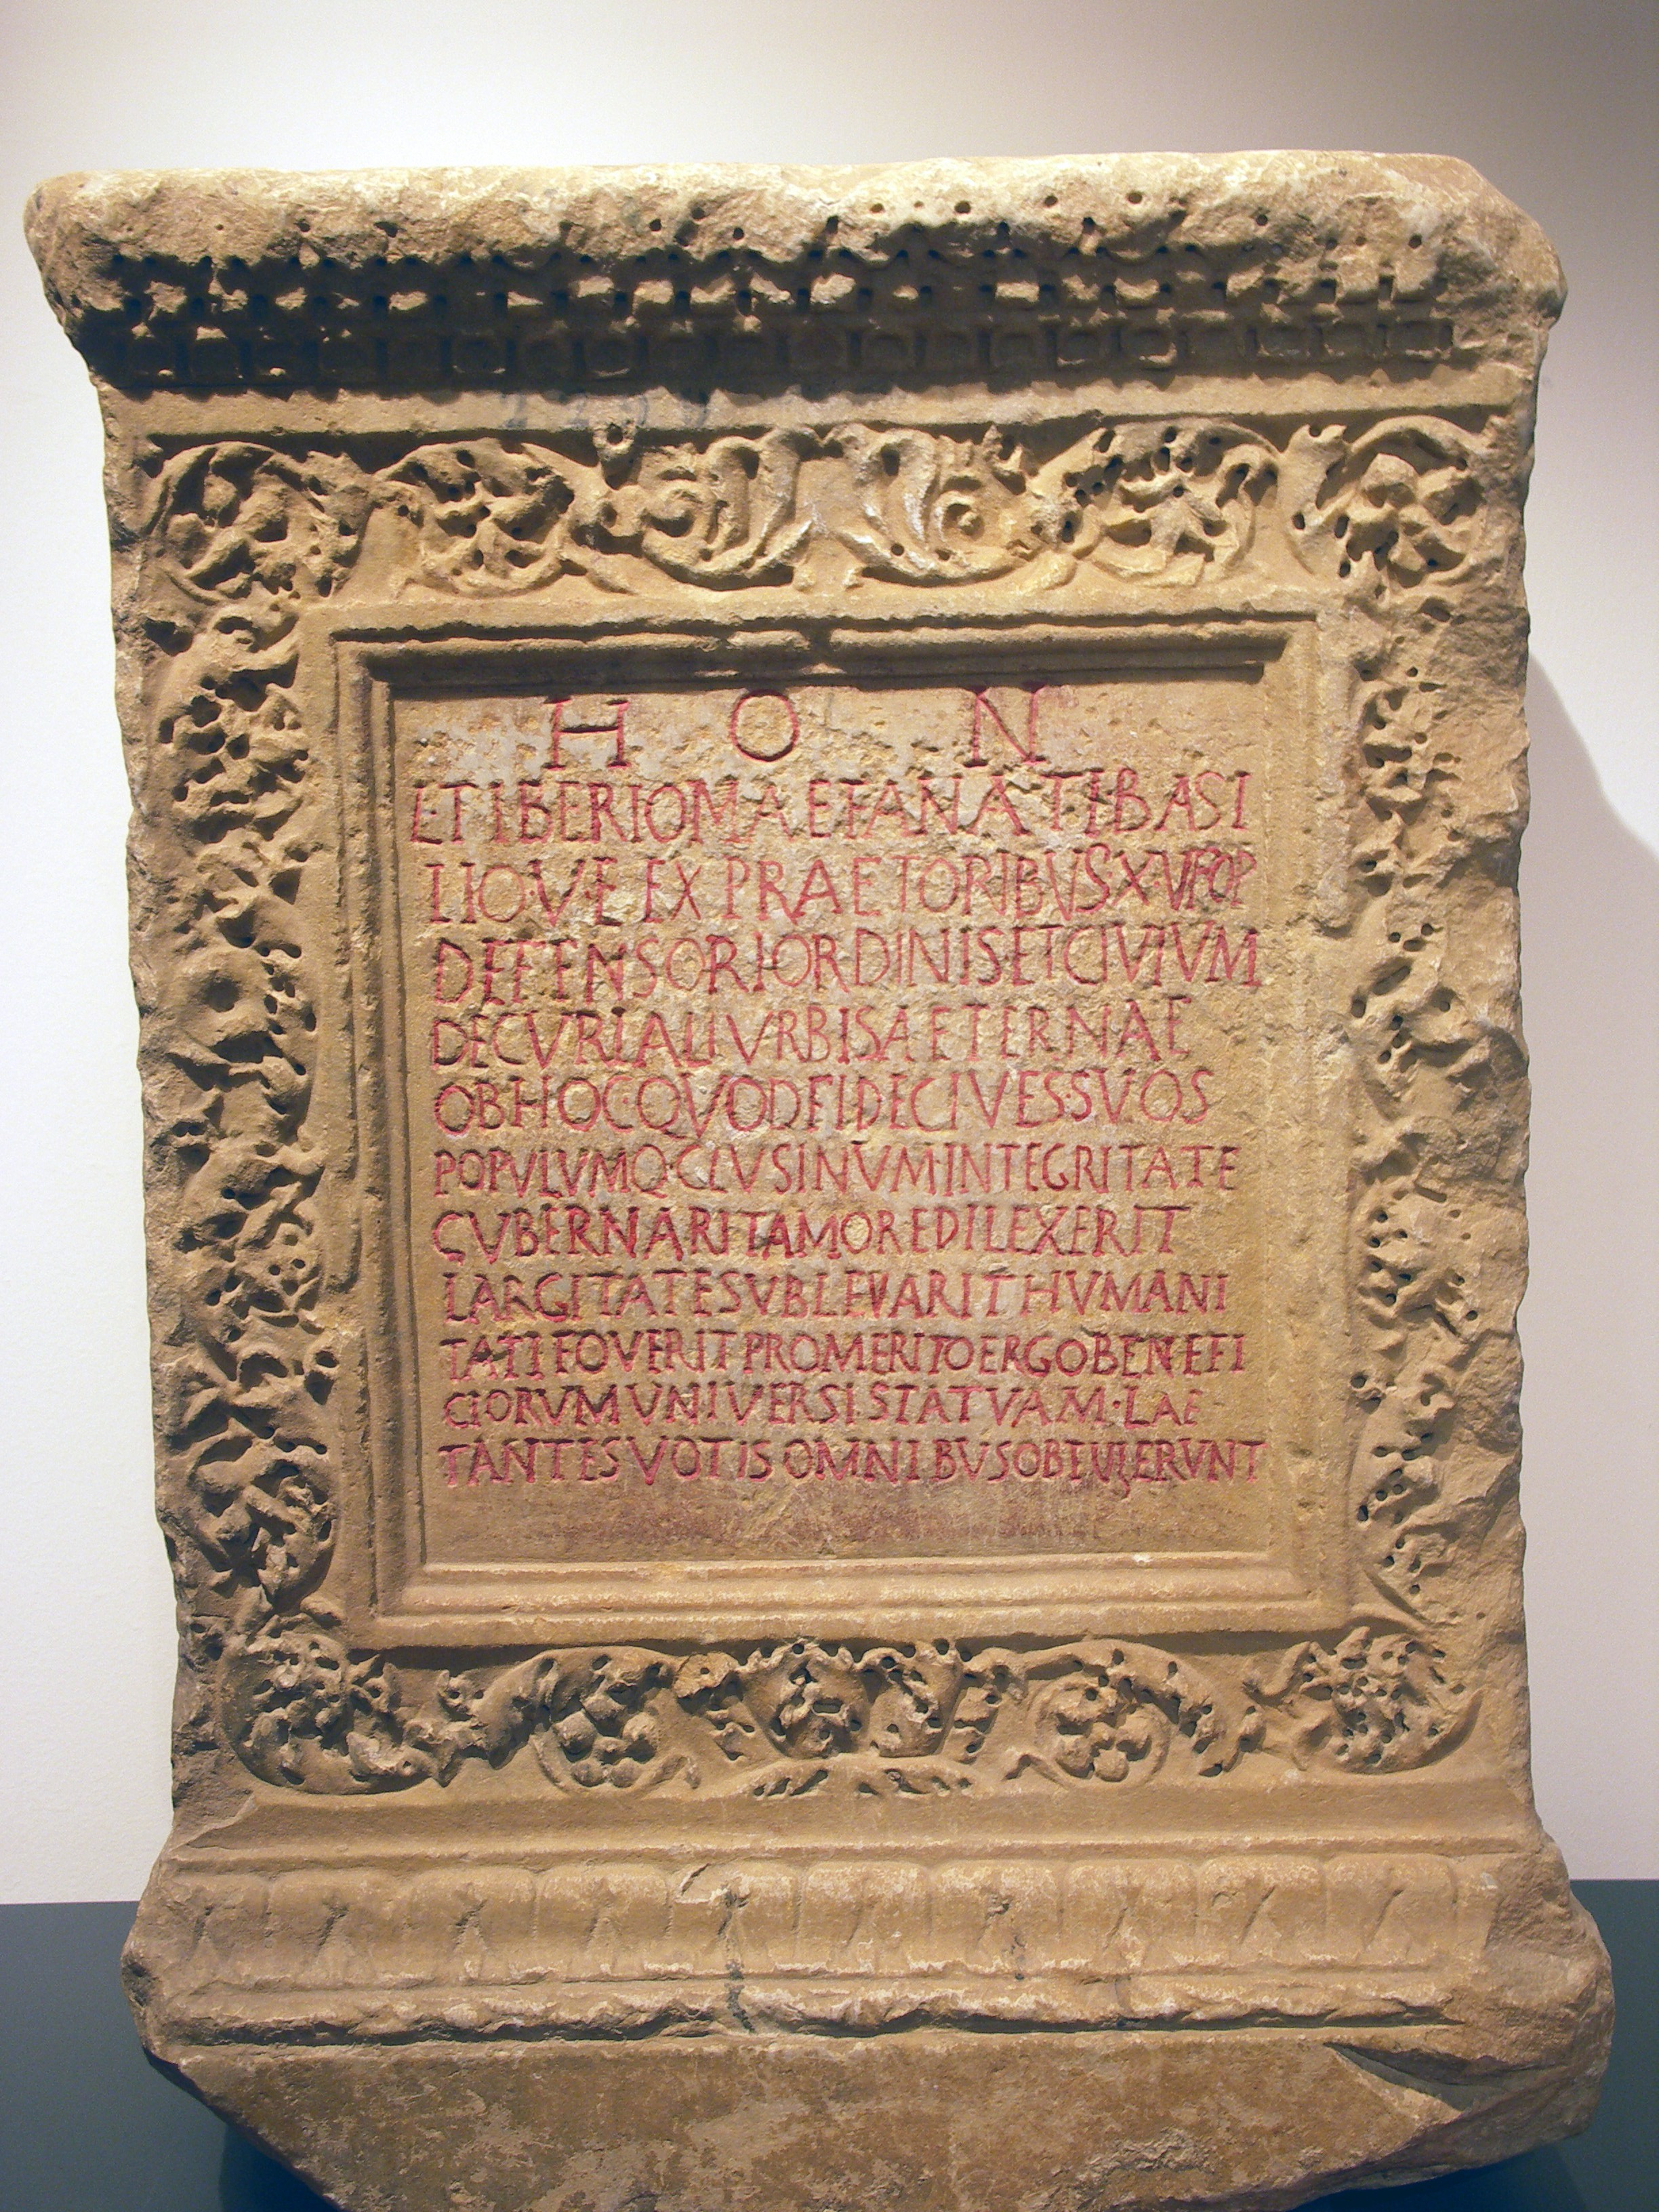 H O N
L TIBERIO MAEFANATI BASI
LIO · V · E EX PRAETORIBUS · X · V POP
DEFENSORI ORDINIS ET CIVIVM
DECVRIALI VRBIS AETERNAE
OB HOC · QVOD FIDE CIVES · SVOS
POPVLVMQ · CLVSINVM · INTEGRITATE
GVBERNARIT AMORE DILEXERIT
LARGITATE SVBLEVARIT HVMANI
TATI FOVERIT PRO MERITO ERGO BENEFI
CIORVM UNIVERSI STATVAM · LAE
TANTES VOTIS OMNIBVS OBTVLERVNT